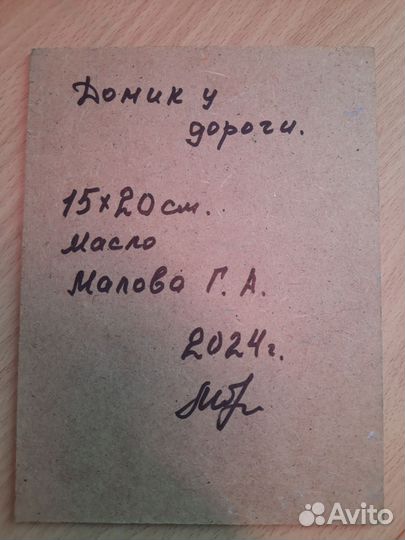 Домик у
дороги.
15×20см.
Масло
Малова Г. А.
2024г.
Avito